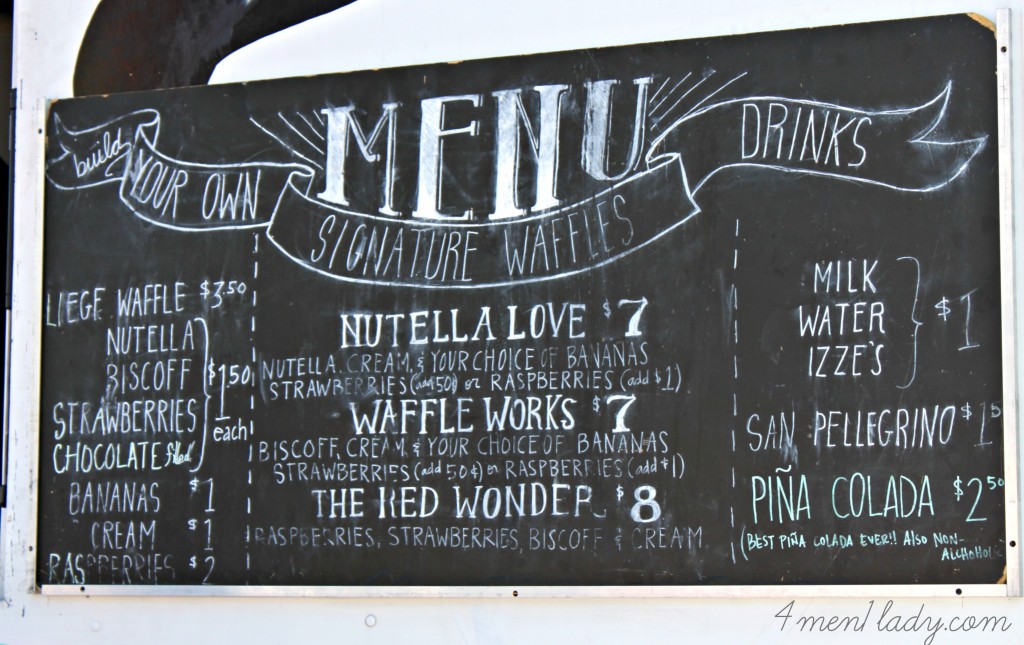 MENU
build
YOUR OWN
SIGNATURE WAFFLES
DRINKS
LIEGE WAFFLE $3.50
NUTELLA
BISCOFF
STRAWBERRIES
CHOCOLATE filled
$1.50 each
BANANAS $1
CREAM $1
RASPBERRIES $2
NUTELLA LOVE $7
NUTELLA, CREAM, & YOUR CHOICE OF BANANAS
STRAWBERRIES (add 50¢) or RASPBERRIES (add $1)
WAFFLE WORKS $7
BISCOFF, CREAM, & YOUR CHOICE OF BANANAS
STRAWBERRIES (add 50¢) or RASPBERRIES (add $1)
THE RED WONDER $8
RASPBERRIES, STRAWBERRIES, BISCOFF & CREAM
MILK
WATER
IZZE'S
$1
SAN PELLEGRINO
PIÑA COLADA $2.50
(BEST PIÑA COLADA EVER!! ALSO NON-
ALCHOHOLIC
4men1lady.com